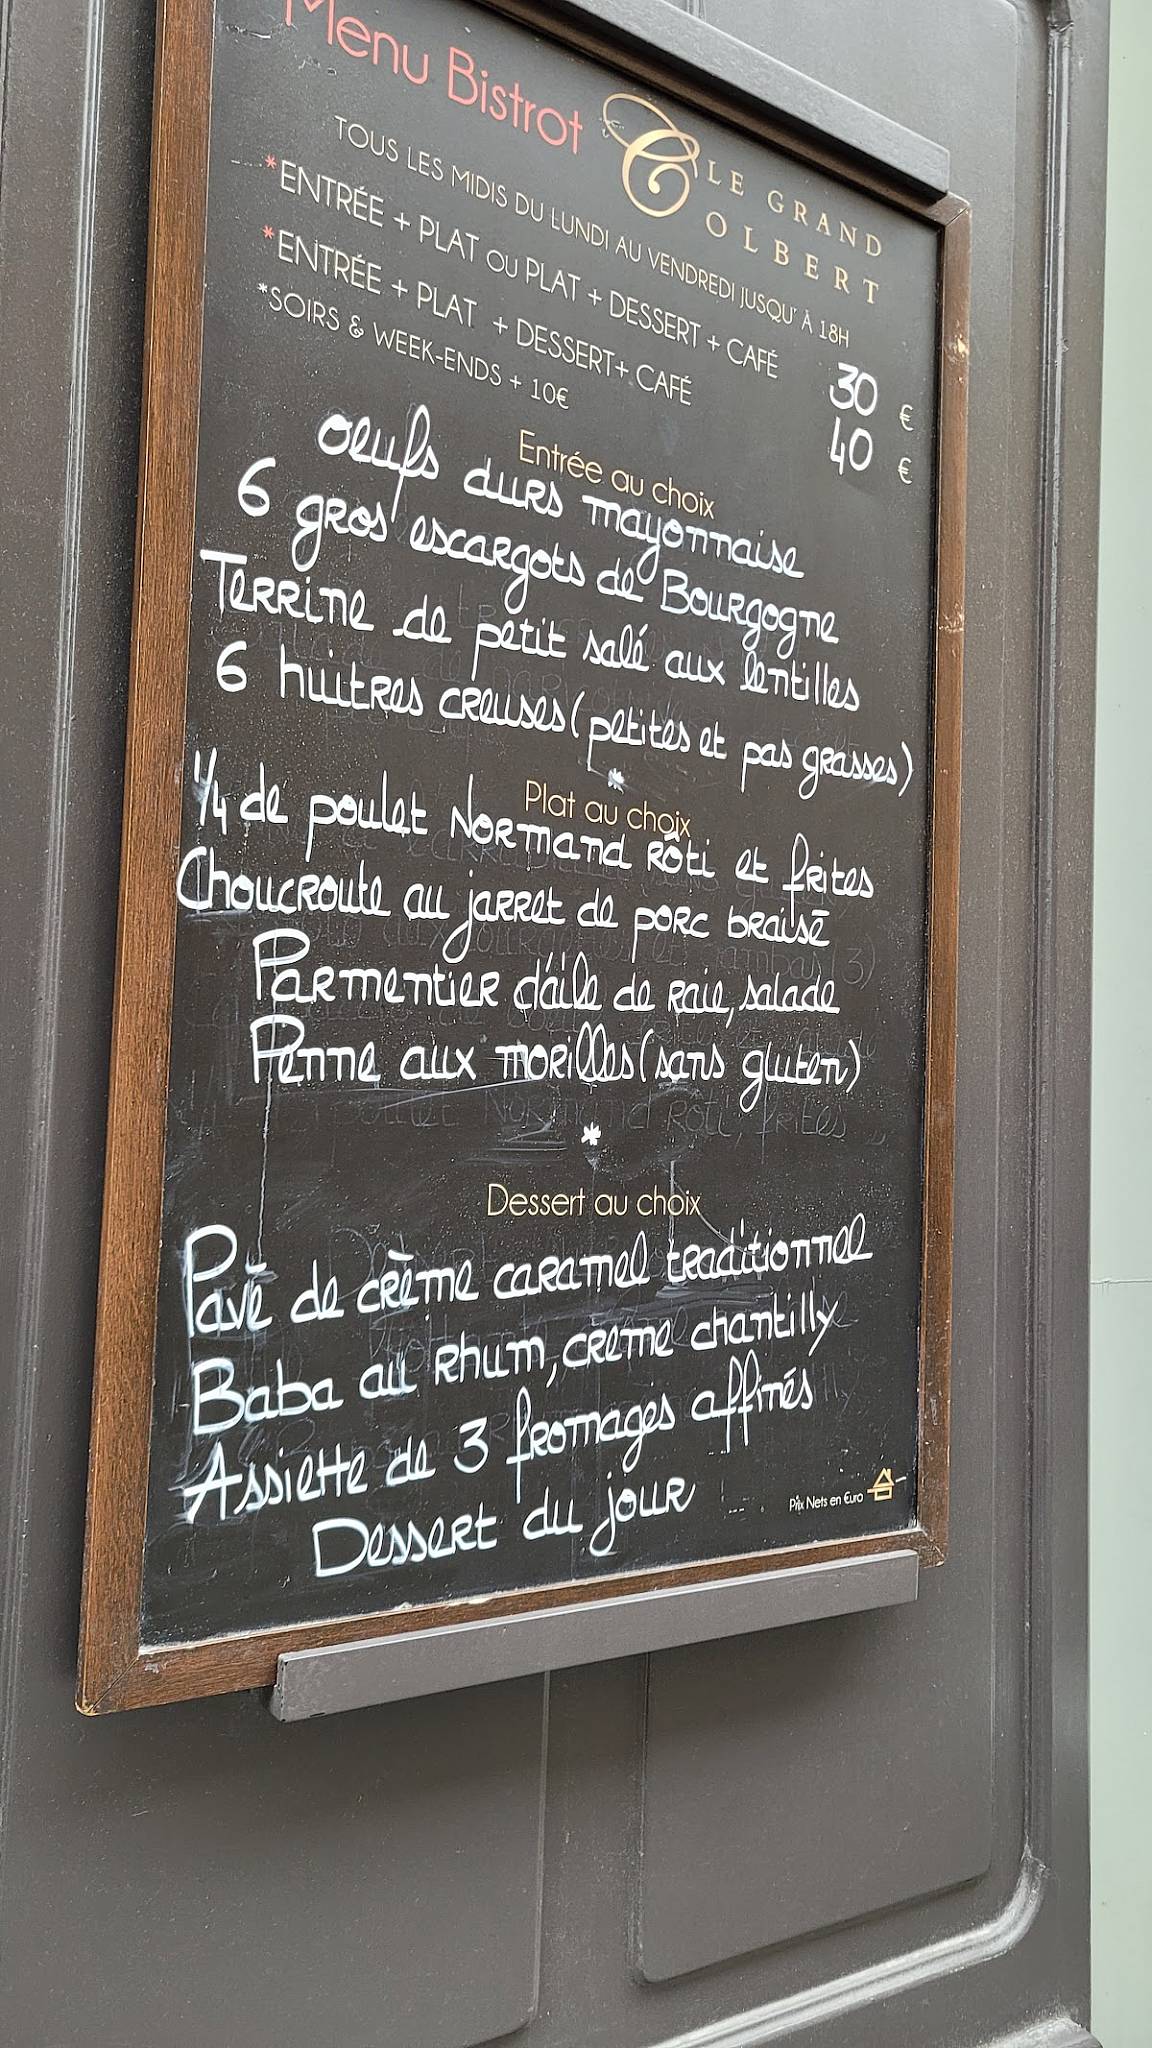 Menu Bistrot
LE GRAND
COLBERT
TOUS LES MIDIS DU LUNDI AU VENDREDI JUSQU' À 18H
*ENTRÉE + PLAT OU PLAT + DESSERT + CAFÉ 30 €
*ENTRÉE + PLAT + DESSERT+ CAFÉ 40 €
*SOIRS & WEEK-ENDS + 10€
Entrée au choix
oeufs durs mayonnaise
6 gros escargots de Bourgogne
Terrine de petit salé aux lentilles
6 huitres creuses (petites et pas grasses)
*
Plat au choix
1/4 de poulet Normand rôti et frites
Choucroute au jarret de porc braisé
Parmentier d'aile de raie, salade
Penne aux morilles (sans gluten)
*
Dessert au choix
Pavé de crème caramel traditionnel
Baba au rhum, creme chantilly
Assiette de 3 fromages affinés
Dessert du jour
Prix Nets en €uro